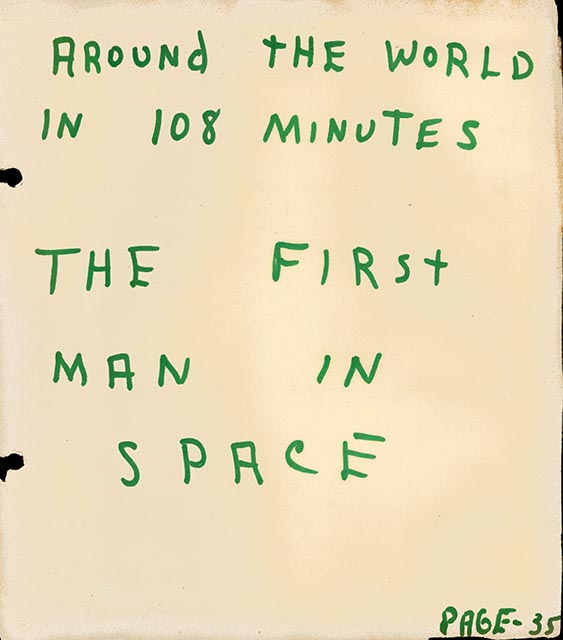 AROUNd tHE WORLD
IN 108 MINUTES
THE FIRSt
MAN IN
SPACE
PAGE-35